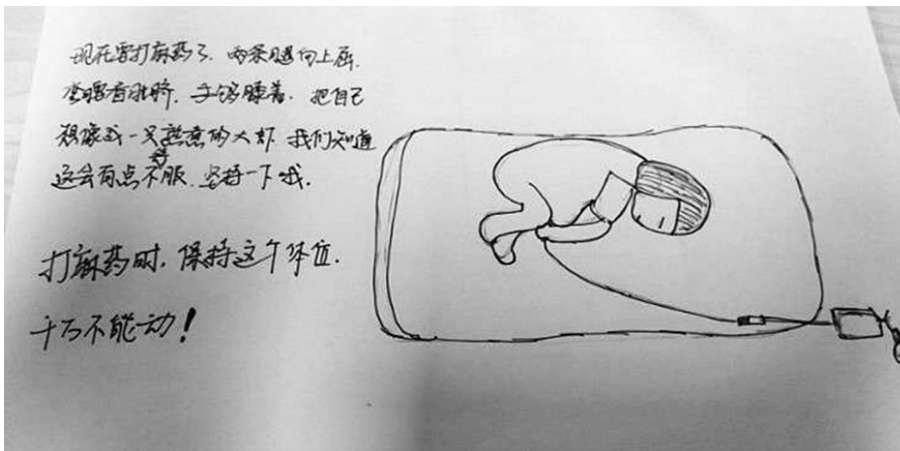 现在要打麻药了.两条腿向上屈.
看肚脐.把自己
想像成一只煮熟的大虾 我们知道
这会有点不舒服.坚持一下哦.
打麻药时,保持这个体位.
千万不能动!